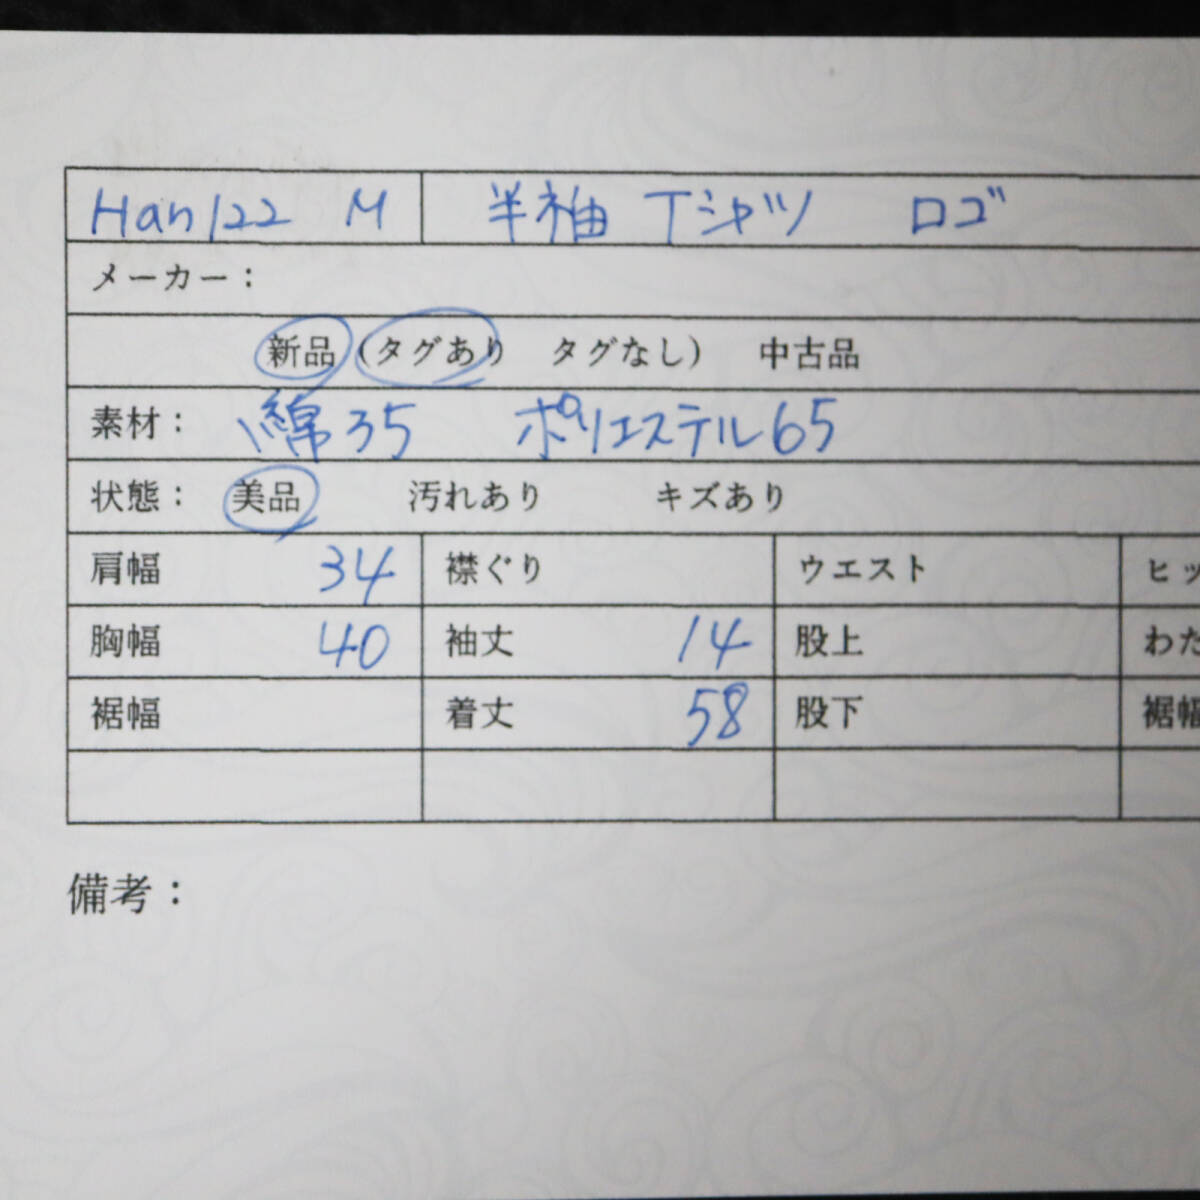 Han122 M 半袖 Tシャツ ロゴ
メーカー：
新品 (タグあり タグなし) 中古品
素材： 綿35 ポリエステル65
状態： 美品 汚れあり キズあり
肩幅 34 襟ぐり ウエスト ヒッ
胸幅 40 袖丈 14 股上 わた
裾幅 着丈 58 股下 裾幅
備考：